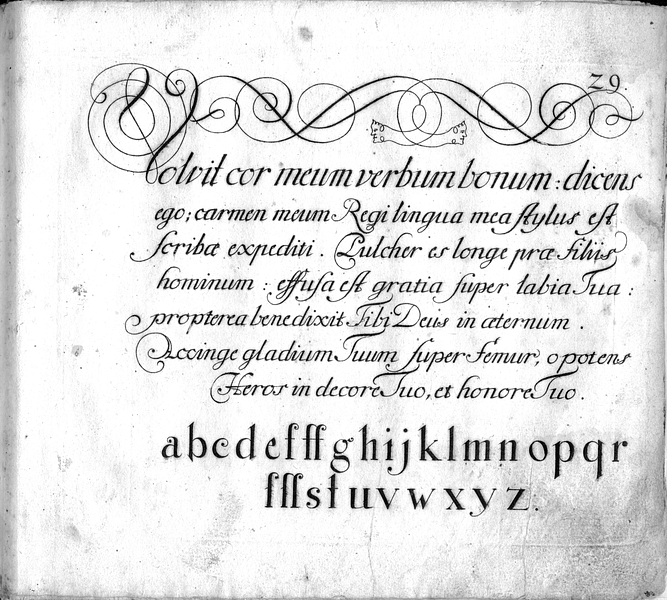 29.
Volvit cor meum verbum bonum : dicens
ego; carmen meum Regi lingua mea ſtylus eſt
ſcribæ expediti . Pulcher es longe præ filiis
hominum : effuſa eſt gratia ſuper labia Tua :
propterea benedixit Tibi Deus in æternum .
Accinge gladium Tuum ſuper Femur, o potens
Heros in decore Tuo, et honore Tuo .
abcdefffghijklmnopqr
ſſſstuvwxyz.